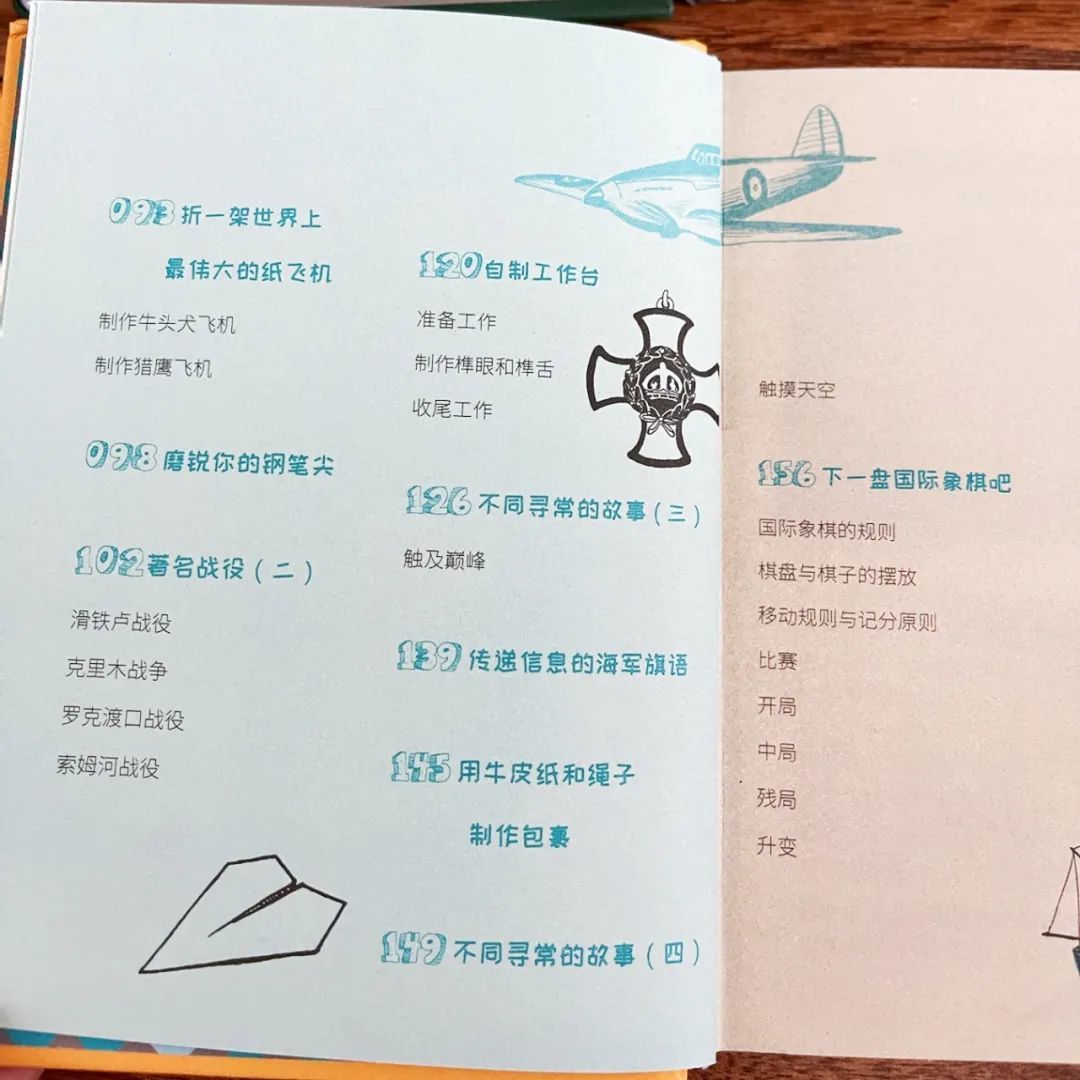 093 折一架世界上
最伟大的纸飞机
制作牛头犬飞机
制作猎鹰飞机
098 磨锐你的钢笔尖
102 著名战役（二）
滑铁卢战役
克里木战争
罗克渡口战役
索姆河战役
120 自制工作台
准备工作
制作榫眼和榫舌
收尾工作
126 不同寻常的故事（三）
触及巅峰
139 传递信息的海军旗语
145 用牛皮纸和绳子
制作包裹
149 不同寻常的故事（四）
触摸天空
156 下一盘国际象棋吧
国际象棋的规则
棋盘与棋子的摆放
移动规则与记分原则
比赛
开局
中局
残局
升变